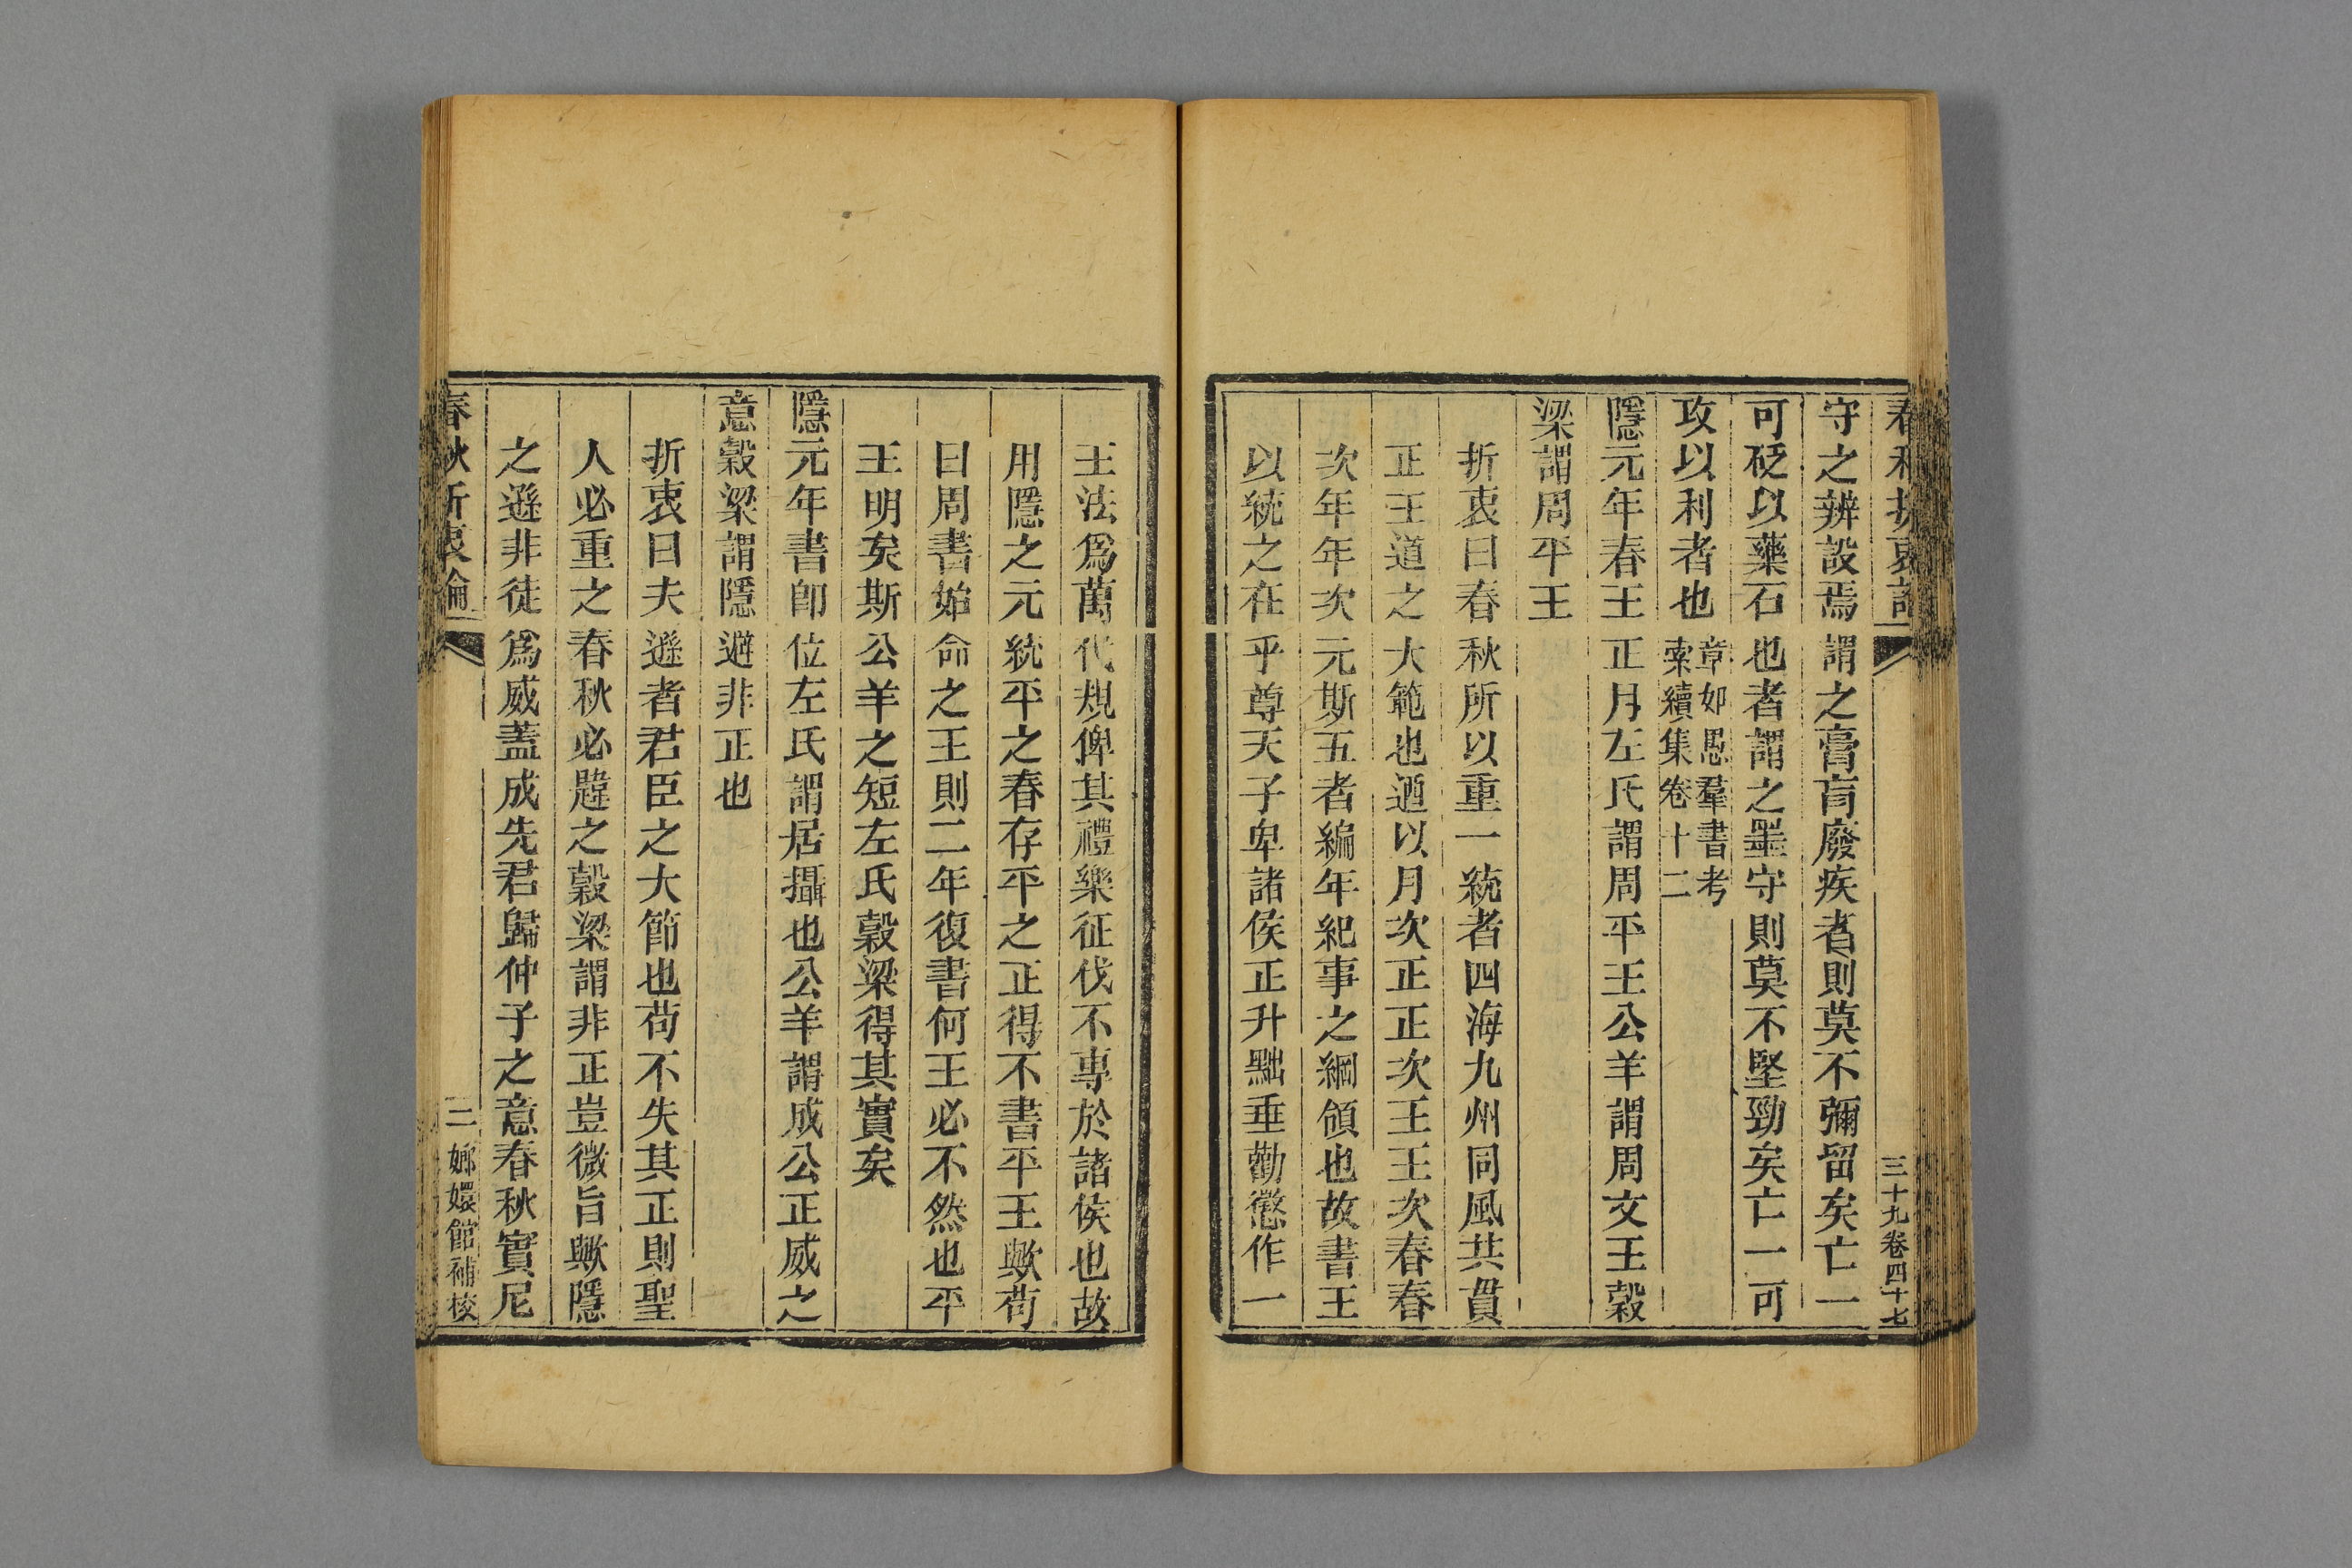 春秋折衷論
三十九卷四十七
守之辨設焉謂之膏肓廢疾者則莫不彌留矣亡一
可砭以藥石也者謂之墨守則莫不堅勁矣亡一可
攻以利者也章如愚羣書考
索續集卷十二
隱元年春王正月左氏謂周平王公羊謂周文王穀
梁謂周平王
折衷曰春秋所以重一統者四海九州同風共貫
正王道之大範也迺以月次正正次王王次春春
次年年次元斯五者編年紀事之綱領也故書王
以統之在乎尊天子卑諸侯正升黜垂勸懲作一
王法爲萬代規俾其禮樂征伐不專於諸侯也故
用隱之元統平之春存平之正得不書平王歟苟
曰周書始命之王則二年復書何王必不然也平
王明矣斯公羊之短左氏穀梁得其實矣
隱元年書卽位左氏謂居攝也公羊謂成公正威之
意穀梁謂隱避非正也
折衷曰夫遜者君臣之大節也苟不失其正則聖
人必重之春秋必韙之穀梁謂非正豈微旨歟隱
之遜非徒爲威蓋成先君歸仲子之意春秋實尼
春秋折衷論
二
嫏嬛館補校